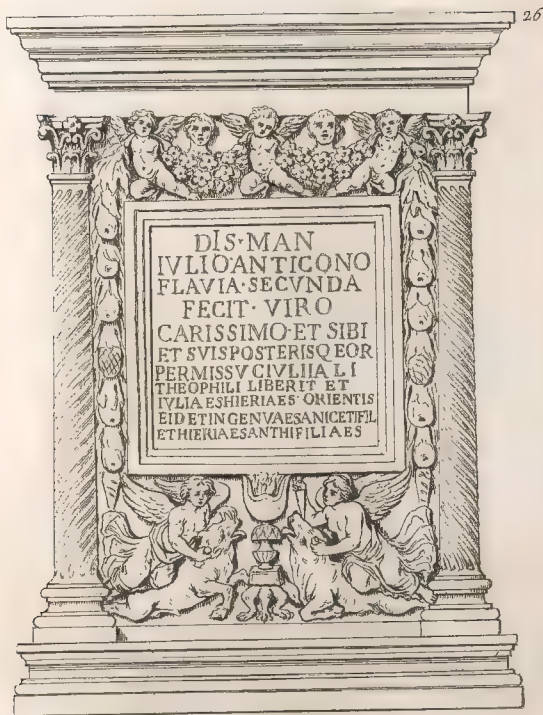 26
DIS·MAN
IVLIO·ANTIGONO
FLAVIA·SECVNDA
FECIT·VIRO
CARISSIMO·ET SIBI
ET SVISPOSTERISQEOR
PERMISSVCIVLIIALI
THEOPHILI LIBERIT ET
IVLIAESHIERIAES·ORIENTIS
EIDETINGENVAESANICETIFIL
ETHIERIAESANTHIFILIAES